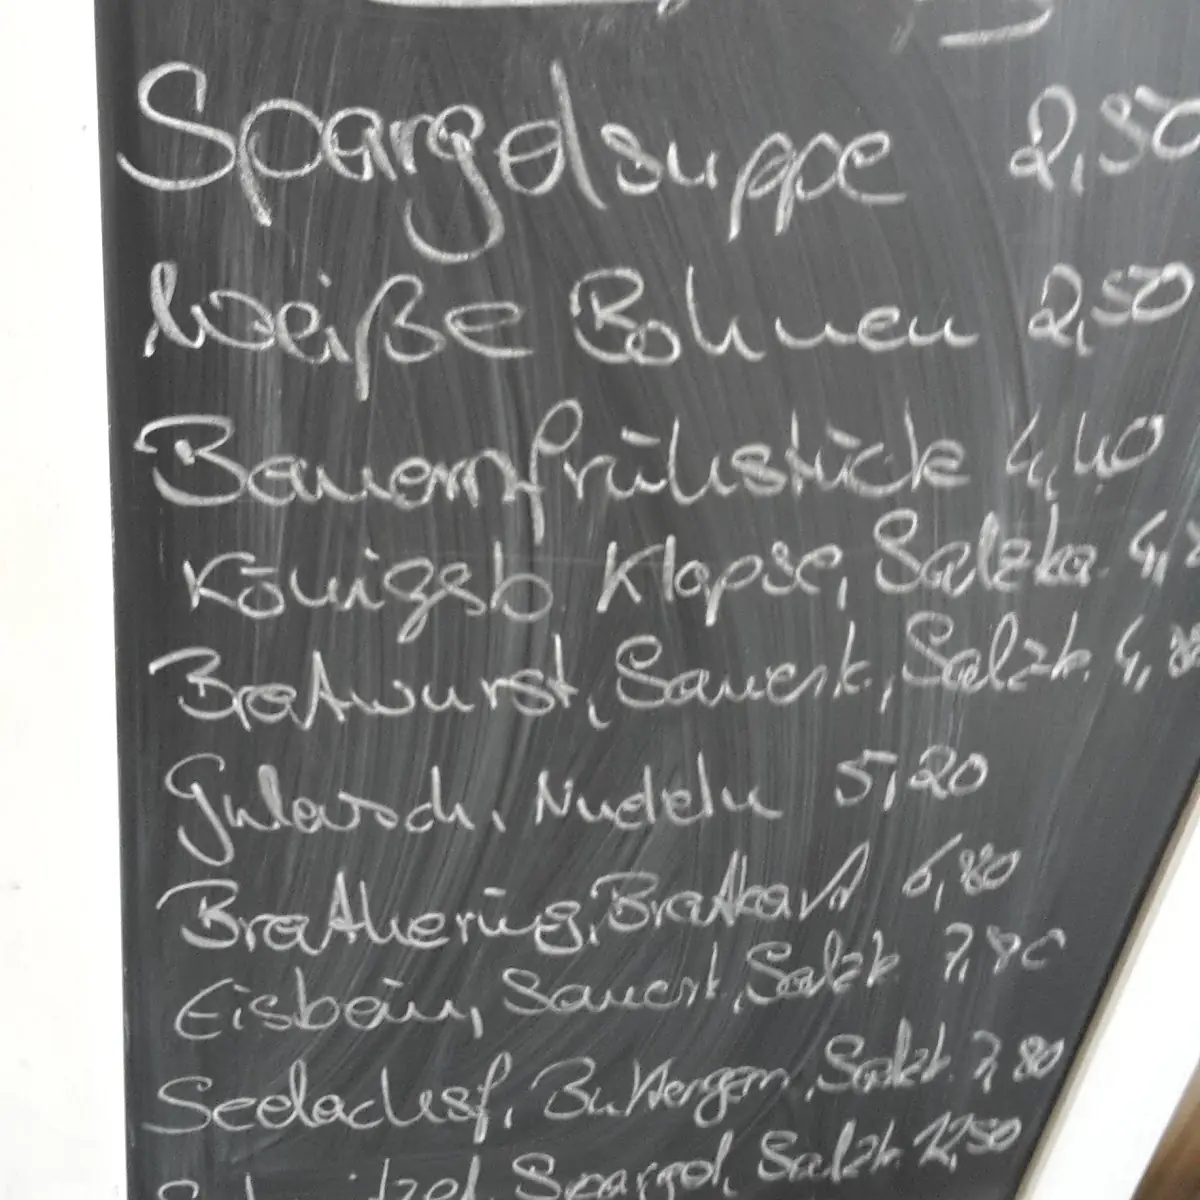 Spargelsuppe 2,50
Weiße Bohnen 2,50
Bauernfrühstück 4,40
Königsb Klopse, Salzka. 4,
Bratwurst, Sauerk., Salzk. 4,80
Gulasch, Nudeln 5,20
Brathering, Bratkart 6,80
Eisbein, Sauerk., Salzk. 7,80
Seelachsf, Buttergem, Salzk. 7,80
Spargel, Salzk. 12,50